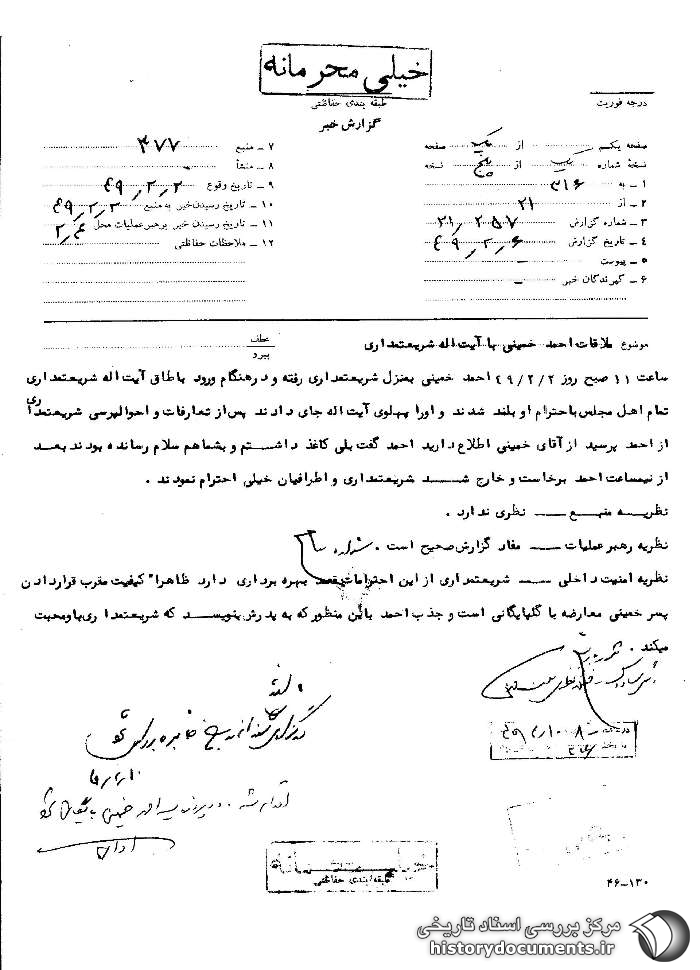 خیلی محرمانه
طبقه بندی حفاظتی
درجه فوریت
گزارش خبر
صفحه یکم از یک صفحه
نسخهٔ شماره یک از پنج نسخه
۱ ـ به ۳۱۶
۲ ـ از ۲۱
۳ ـ شماره گزارش ۲۱٫۲۵۷
۴ ـ تاریخ گزارش ۴۹٫۲٫۶
۵ ـ پیوست ـ
۶ ـ گیرندگان خبر ـ
۷ ـ منبع ۴۷۷
۸ ـ منشأ ـ
۹ ـ تاریخ وقوع ۴۹٫۲٫۲
۱۰ ـ تاریخ رسیدن خبر به منبع ۴۹٫۲٫۲
۱۱ ـ تاریخ رسیدن خبر برهبر عملیات محل ۲٫۴
۱۲ ـ ملاحظات حفاظتی
موضوع ملاقات احمد خمینی با آیت اله شریعتمداری
عطف
پیرو
ساعت ۱۱ صبح روز ۴۹/۲/۲ احمد خمینی بمنزل شریعتمداری رفته و در هنگام ورود باطاق آیت اله شریعتمداری
تمام اهل مجلس باحترام او بلند شدند و اورا پهلوی آیت اله جای دادند پس از تعارفات و احوالپرسی شریعتمداری
از احمد پرسید از آقای خمینی اطلاع دارید احمد گفت بلی کاغذ داشتم و بشما هم سلام رسانده بودند بعد
از نیمساعت احمد برخاست و خارج شد شریعتمداری و اطرافیان خیلی احترام نمودند .
نظریه منبع ــ نظری ندارد .
نظریه رهبر عملیات ــ مفاد گزارش صحیح است .
نظریه امنیت داخلی ــ شریعتمداری از این احترامات قصد بهره برداری دارد ظاهرا" کیفیت مقرب قرار دادن
پسر خمینی معارضه با گلپایگانی است و جذب احمد باین منظور که به پدرش بنویسد که شریعتمداری باو محبت
میکند .
خیلی محرمانه
طبقه بندی حفاظتی
۴۶ـ۱۳۰
مرکز بررسی اسناد تاریخی
historydocuments.ir